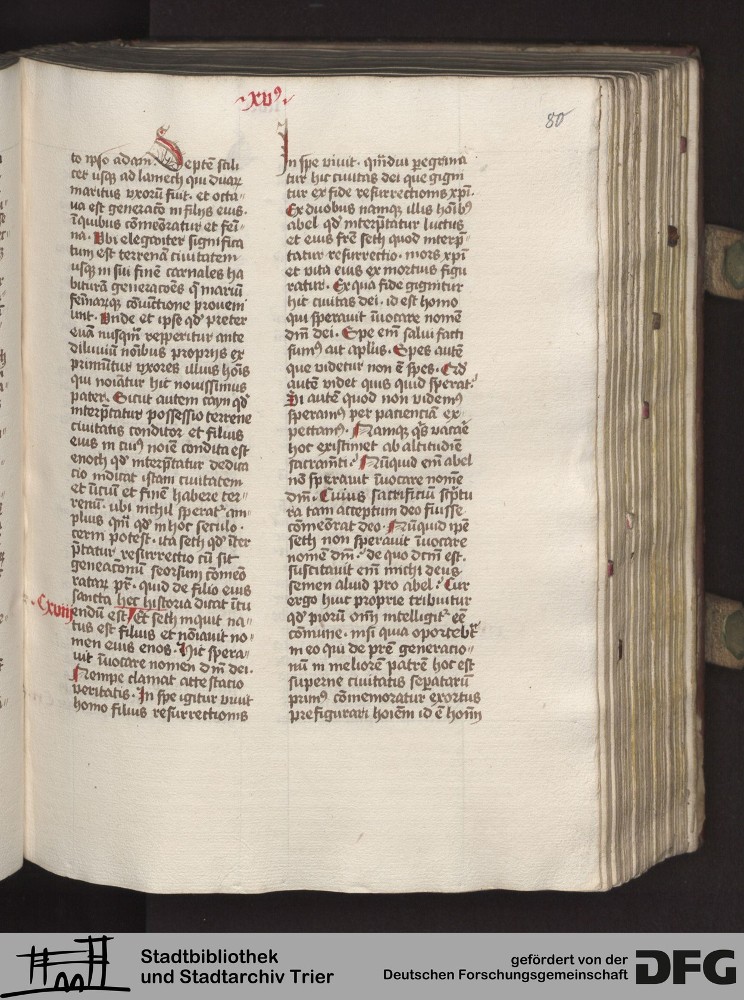 xv⁹
80
to ip̄o adam. Septē scili
cet usq̄ ad lamech qui duaꝝ
maritus vxorū fuit. et octa-
ua est generac̄o in filijs eius.
ī quibus cōmēoratur et fēi-
na. Vbi eleganter significa
tum est terrenā ciuitatem
usq̄ in sui finē carnales ha
biturā generacōēs q̄ mariū
fēmarūq̄ cōiūctione proueni
unt. Vnde et ipse qd̓ preter
euā nusqm̄ repperitur ante
diluuiū nōībus proprijs ex
primūtur vxores illius hoīs
qui noīatur hic nouissimus
pater. Sicut autem cayn qd̓
interp̄tatur possessio terrene
ciuitatis conditor et filius
eius in cui⁹ noīe condita est
enoch qd̓ interp̄tatur dedica
cio indicat istam ciuitatem
et īiciū et finē habere ter-
renū. vbi nichil sperat̓ am-
plius qm̄ qd̓ in hoc seculo.
cerni potest. ita seth qd̓ īter
p̄tatur resurrectio cū sit
generacōnū seorsum cōmēo
rataꝝ pr̄. quid de filio eius
sancta hec historia dicat ītu
Cxviij
endū est. Et seth inquit na-
tus est filius et nōīauit no-
men eius enos. Hic spera-
uit īuocare nomen dn̄i dei.
Nempe clamat attestacio
veritatis. In spe igitur viuit
homo filius resurrectionis
In spe viuit. qm̄diu peregrina
tur hic ciuitas dei que gigni
tur ex fide resurrectionis xp̄i.
Ex duobus namq̄ illis hōīb⁹
abel qd̓ interp̄tatur luctus
et eius fr̄e seth quod interp̄
tatur resurrectio. mors xp̄i
et vita eius ex mortuis figu
ratur. Ex qua fide gignitur
hic ciuitas dei. id est homo
qui sperauit īuocare nomē
dn̄i dei. Spe em̄ salui facti
sum⁹ ait ap̄lus. Spes autē
que videtur non ē spes. Qd̓
autē videt quis quid sperat.
Si autē quod non videm⁹
speram⁹ per patienciā ex-
pectam⁹. Namq̄ q̄s vacaē
hoc existimet ab altitudīe
sacram̄ti. Nūquid em̄ abel
nō sperauit īuocare nomē
dn̄i. Cuius sacrificiū sc̄ptu
ra tam acceptum deo fuisse
cōmēōrat deo. Nūquid ip̄e
seth non sperauit īuocare
nomē dn̄i. de quo dc̄m est.
suscitauit em̄ michi deus
semen aliud pro abel. Cur
ergo huic proprie tribuitur
qd̓ pioꝝ oīm̄ intelligit̓ ēē
cōmune. nisi quia oportebt̓
in eo qui de prē generacio-
nū in meliorē patrē hoc est
superne ciuitatis sep̄ataꝝ
prim⁹ cōmemoratur exortus
prefigurari hoiēm id ē hoīm̄
Stadtbibliothek
und Stadtarchiv Trier
gefördert von der
Deutschen Forschungsgemeinschaft
DFG